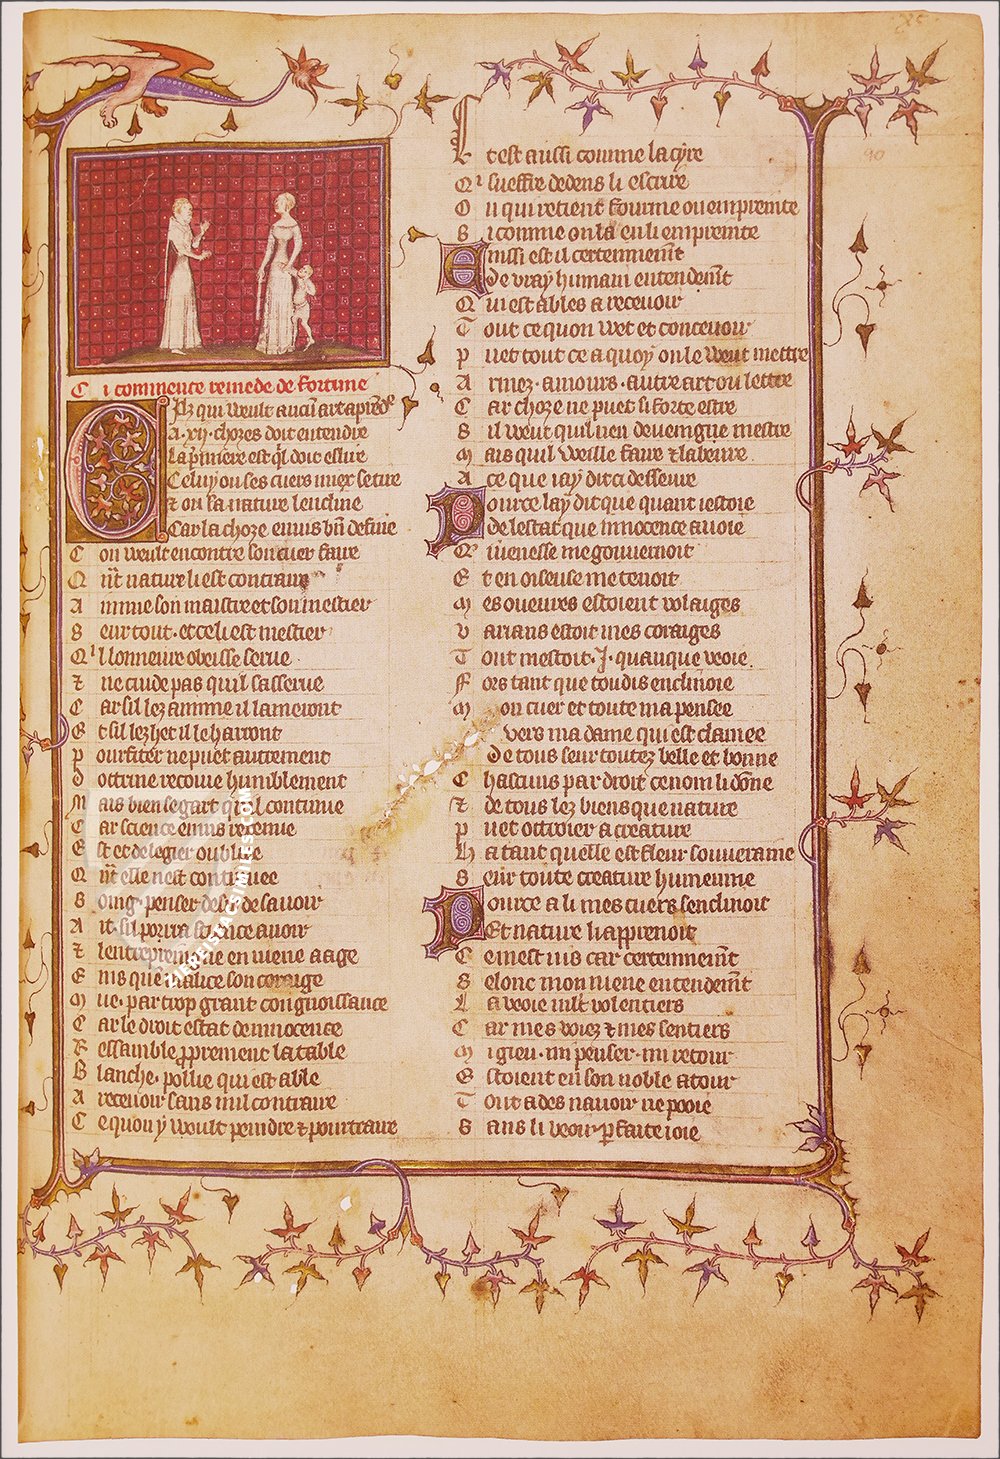 C i commence remede de fortune
Cilz qui veult aucun art aprēdᵉ
A .xij. choses doit entendre
La p̄miere est q̄l doit eslire
Celuy ou ses cuers miex se tire
⁊ ou sa nature lencline
Car la choze enuis bn̄ define
C on veult encontre son cuer faire
Q n̄t nature li est contraire
A imme son maistre et son mestier
S eur tout . et ce li est mestier
Qⁱ l lonneure obeisse serue
⁊ ne cuide pas quil sasserue
C ar sil lez aimme il lameront
E t sil lez het il le harront
P ourfiter ne puet autrement
D octrine recoiue humblement
M ais bien se gart quil continue
C ar science enuis retenue
E st et de legier oubliee
Q n̄t elle nest continuee
S oing . penser desir de sauoir
A it . sil porra science auoir
⁊ lentrepreingne en iuene aage
E ins que malice son coraige
M ue . par trop grant congnoissance
C ar le droit estat dinnocence
R essamble proprement la table
B lanche . polie qui est able
A receuoir sans nul contraire
C e quon y veult peindre ⁊ pourtraire
E t est aussi comme la cyre
Qⁱ sueffre dedens li escrire
O u qui retient fourme ou empreinte
S i comme on la en li empreinte
Einssi est il certeinnem̄t
de vray humain entendem̄t
Q ui est ables a receuoir
T out ce quon vet et conceuoir
P uet tout ce a quoy on le veut mettre
A rmez . amours . autre art ou lettre
C ar choze ne puet si forte estre
S il veut quil nen deueingne mestre
M ais quil veille faire ⁊ labeure
A ce que iay dit ci desseure
Pource lay dit que quant iestoie
de lestat que innocence auoie
Qᵉ iuenesse me gouuernoit
E t en oiseuse me tenoit
M es oueures estoient volaiges
V arians estoit mes coraiges
T out mestoit .j. quanque veoie .
F ors tant que toudis enclinoie
M on cuer et toute ma pensee
vers ma dame qui est clamee
de tous seur toutez belle et bonne
C hascuns par droit ce nom li dōne
⁊ de tous lez biens que nature
P uet ottroier a creature
H a tant quelle est fleur souuerainne
S eur toute creature humeinne
Pource a li mes cuers senclinoit
Et nature li app̄enoit
C e mest vis car certeinnem̄t
S elonc mon iuene entendem̄t
L a veoie mlt volentiers
C ar mes voiez ⁊ mes sentiers
M i gieu . mi penser . mi retour
E stoient en son noble atour
T out ades nauoir ne pooie
S ans li veoir parfaite ioie
90